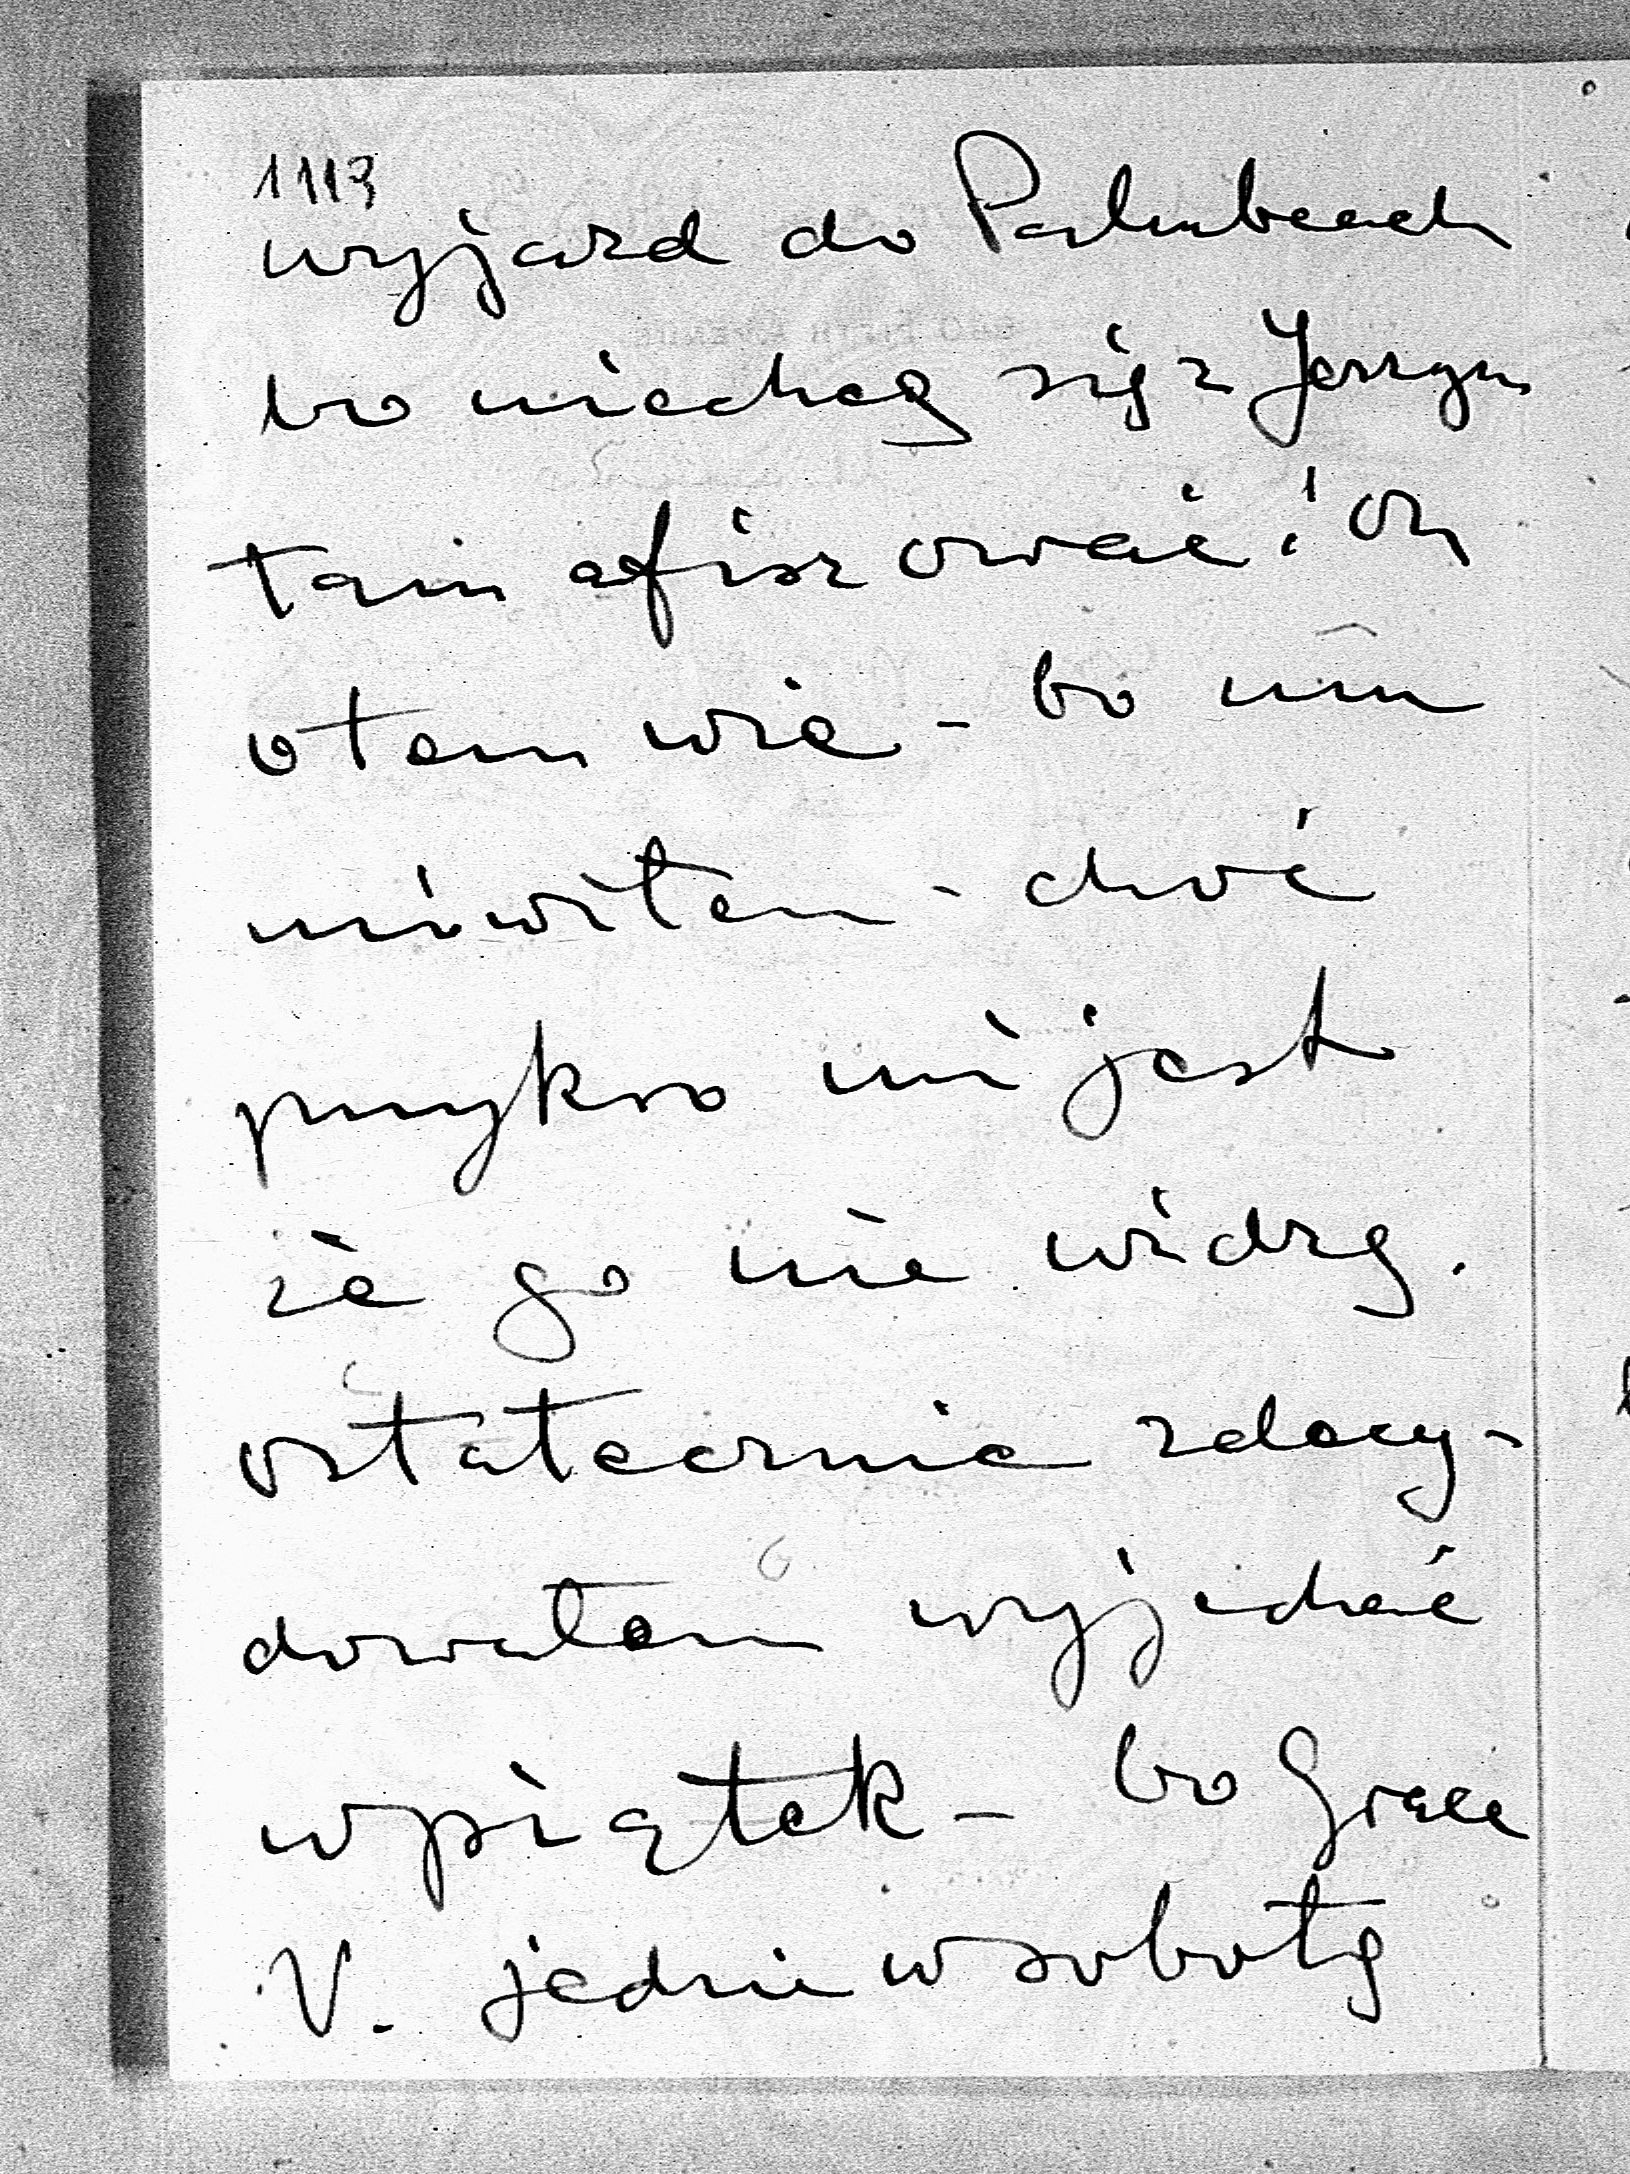 1113
wyjazd do Palmbeach
bo niechcę się z Jerzym
tam afiszować i on
o tem wie - bo mu
mówiłem - choć
przykro mi jest
że go nie widzę.
ostatecznie zdecy-
dowałem wyjechać
w piątek - bo Grace
V. jedzie w sobotę